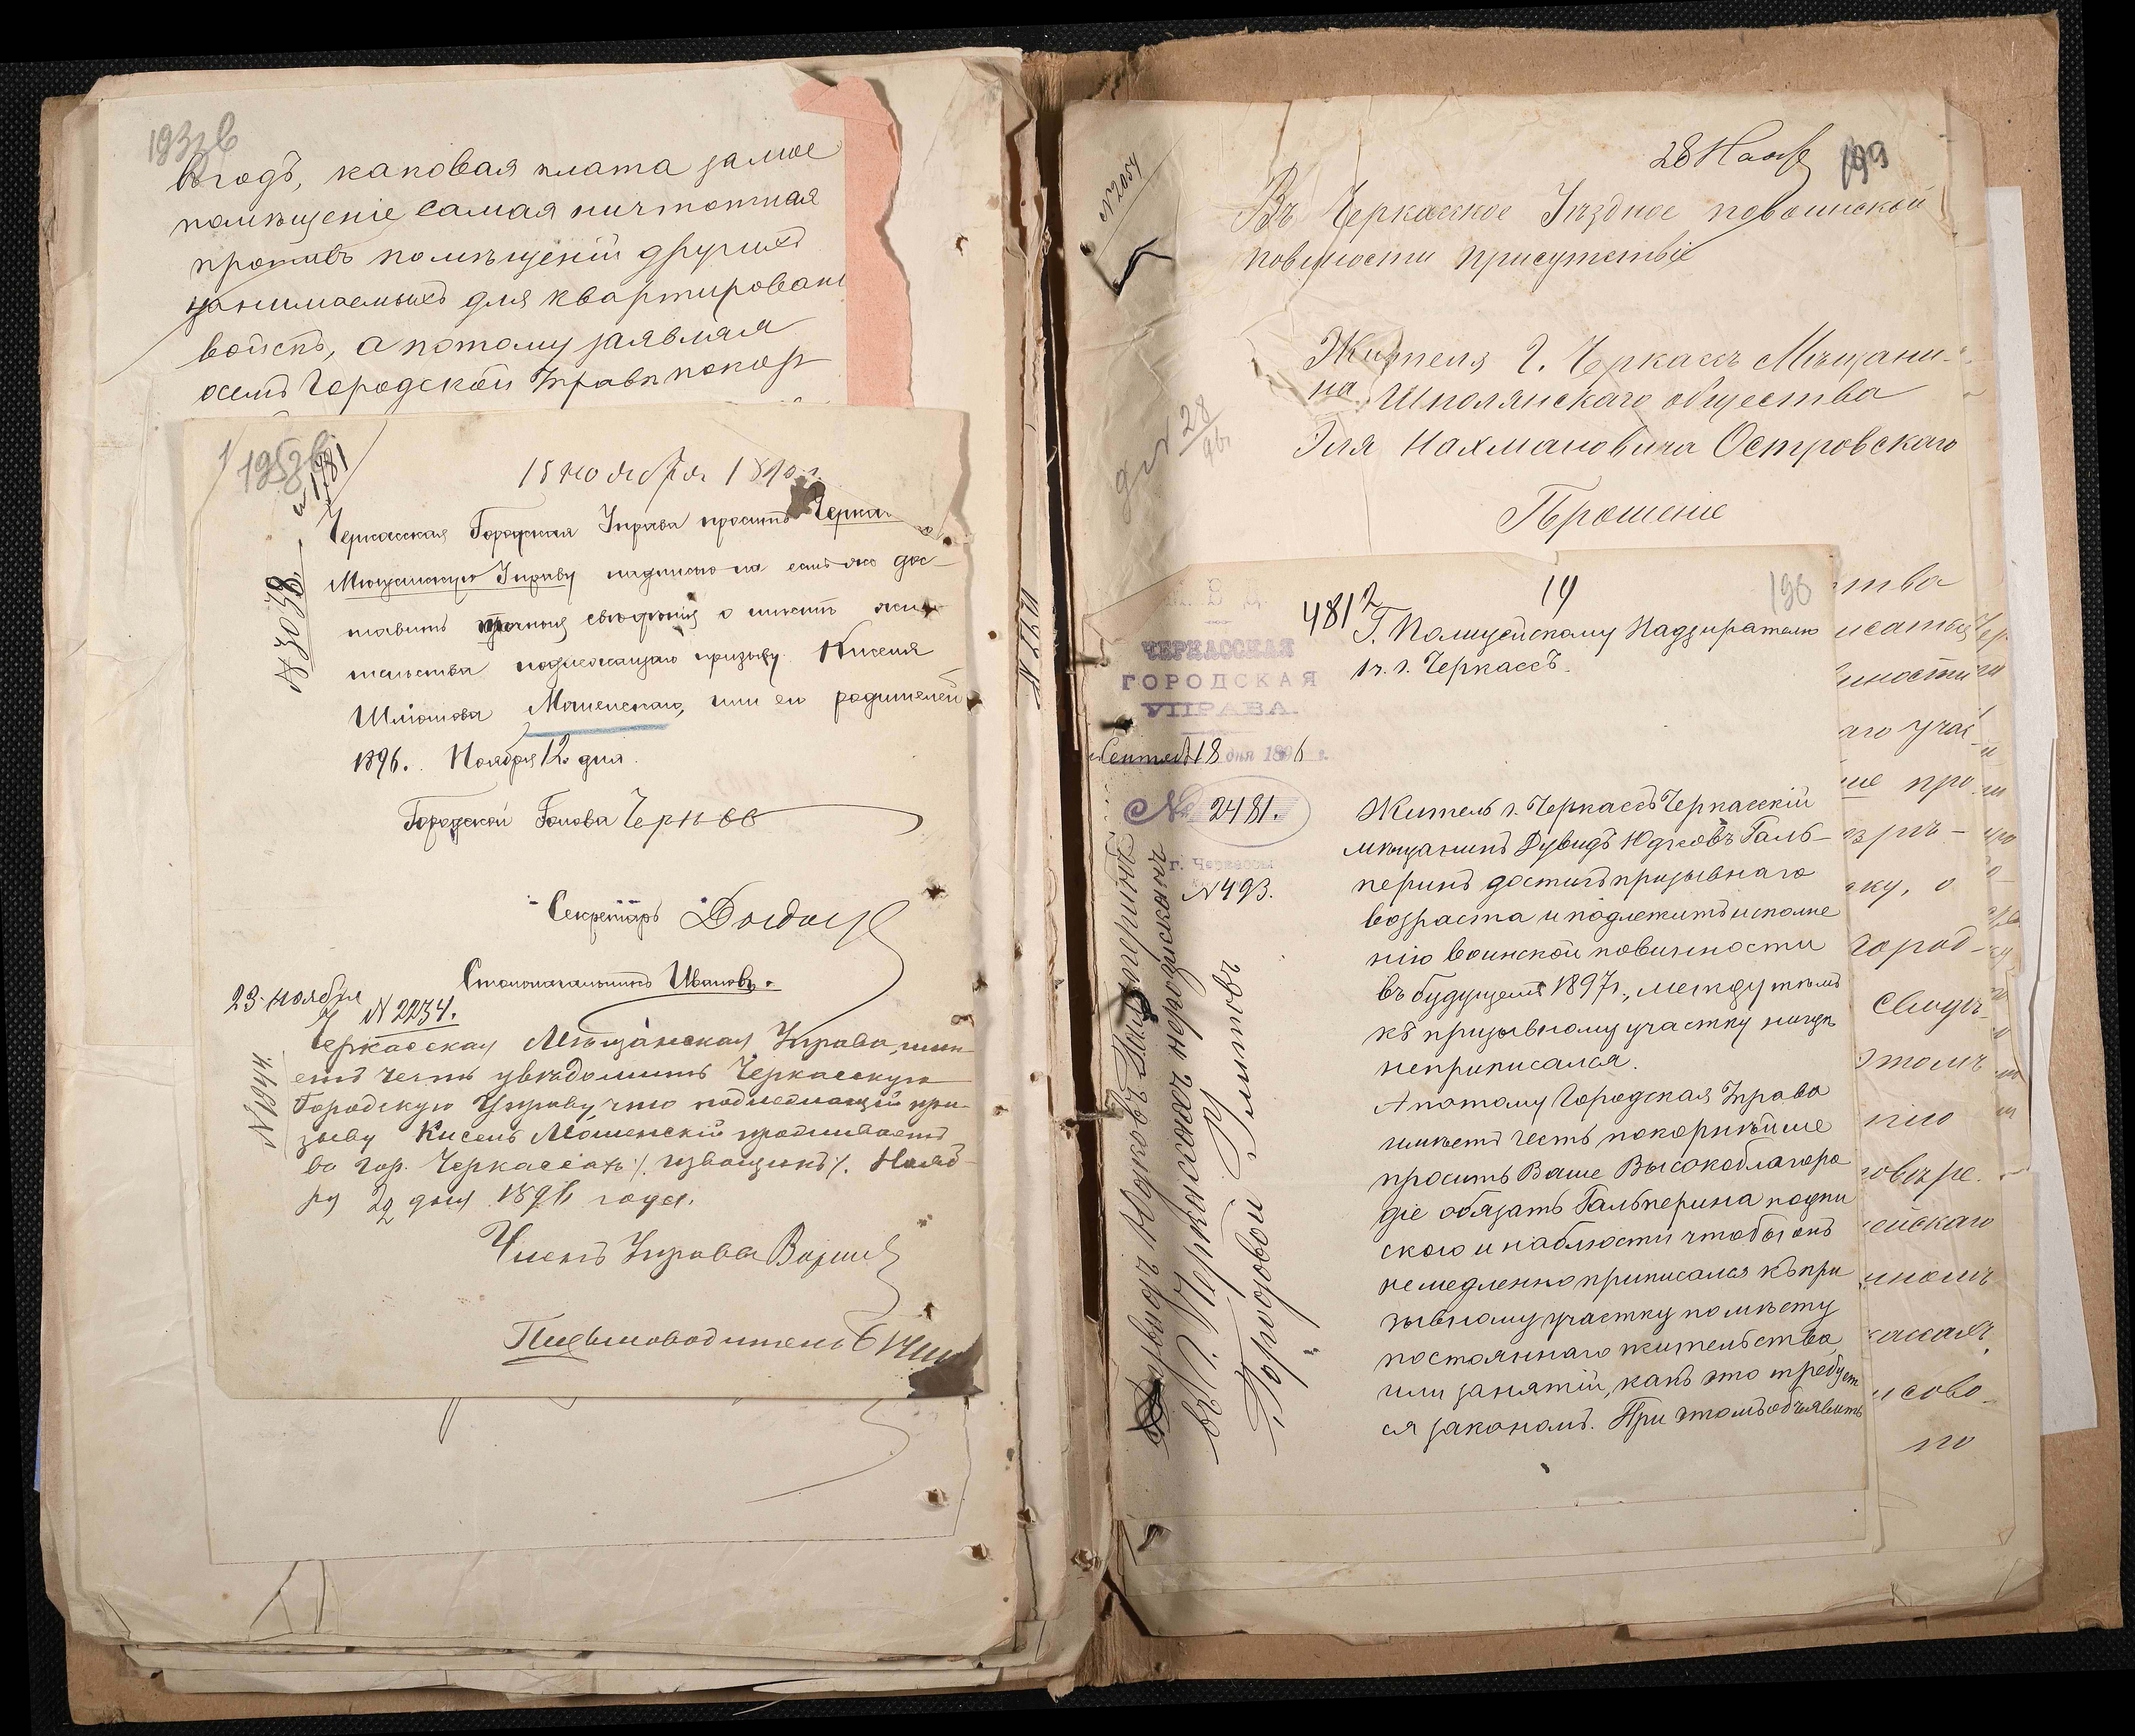 193зв
въ годъ, каковая плата за мое
помѣщеніе самая ничтожная
противъ помѣщеній другихъ
занимаемыхъ для квартирован
войскъ, а потому заявляя
о семъ Городской Управѣ покор
195зв
№ 1781
15 ноября 1896 г.
№ 3038
Черкасская Городская Управа проситъ Черкас
Мѣщанскую Управу надписью на семъ же дос-
тавить точныя свѣдѣнія о мѣстѣ жи
тельства подлежащаго призыву Киселя
Шлiомова Мошенскаго, или его родителей
1896. Ноября 12 дня.
Городской Голова Черновъ
Секретарь
Столоначальникъ Ивановъ.
23 ноября
№ 2234.
№ 1944.
Черкасская Мѣщанская Управа, имѣ
етъ честь увѣдомить Черкасскую
Городскую Управу, что подлежащій при-
зыву Кисель Мошенскій проживаетъ
въ гор. Черкассахъ /. извощикъ /. Нояб-
ря 22 дня 1896 года.
Членъ Управы
Письмоводитель
№ 2054
28 Нояб
199
Въ Черкасское Уѣздное по воинской
повинности присутствіе
Жителя г. Черкассъ Мѣщани-
на Шполянскаго общества
Эля Нахмановича Островскаго
Прошеніе
28
96
196
14
481
М. В. Д.
ЧЕРКАССКАЯ
ГОРОДСКАЯ
УПРАВА.
Сентяб 18 дня 1896 г.
№ 2481.
г. Черкассы
№ 493.
Г. Полицейскому Надзирателю
1 ч. г. Черкассъ.
Житель г. Черкассъ Черкасскій
мѣщанинъ Дувидъ Юдковъ Галь-
перинъ достигъ призывнаго
возраста и подлежитъ исполне
нію воинской повинности
въ будущемъ 1897 г., между тѣмъ
къ призывному участку нигдѣ
не приписался.
А потому Городская Управа
имѣетъ честь покорнѣйше
просить Ваше Высокоблагоро
діе обязать Гальперина подпи
скою и наблюсти чтобы онъ
немедленно приписался къ при
зывному участку по мѣсту
постояннаго жительства
или занятій, какъ это требует
ся закономъ. При этомъ объявить
Дувидъ Юдковъ Гальперинъ
въ г. Черкассахъ неразысканъ
Городовой Титовъ
тва
исаться
нности
аго учас
ше про
ку, о
Город-
Свидѣ-
этомъ
нію
ейскаго
нномъ
кассахъ
по